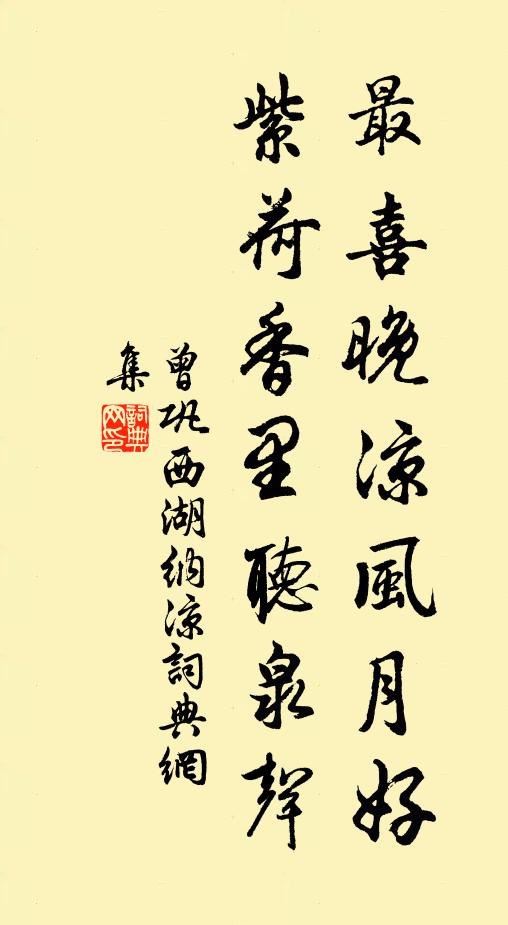 最喜晚涼風月好
紫荷香里聽泉聲
曾巩西湖納涼詞典網
集
詞典
网印